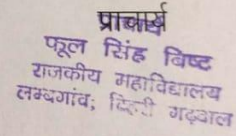 प्राचार्य
फूल सिंह बिष्ट
राजकीय महाविद्यालय
लम्बगांव; टिहरी गढ़वाल